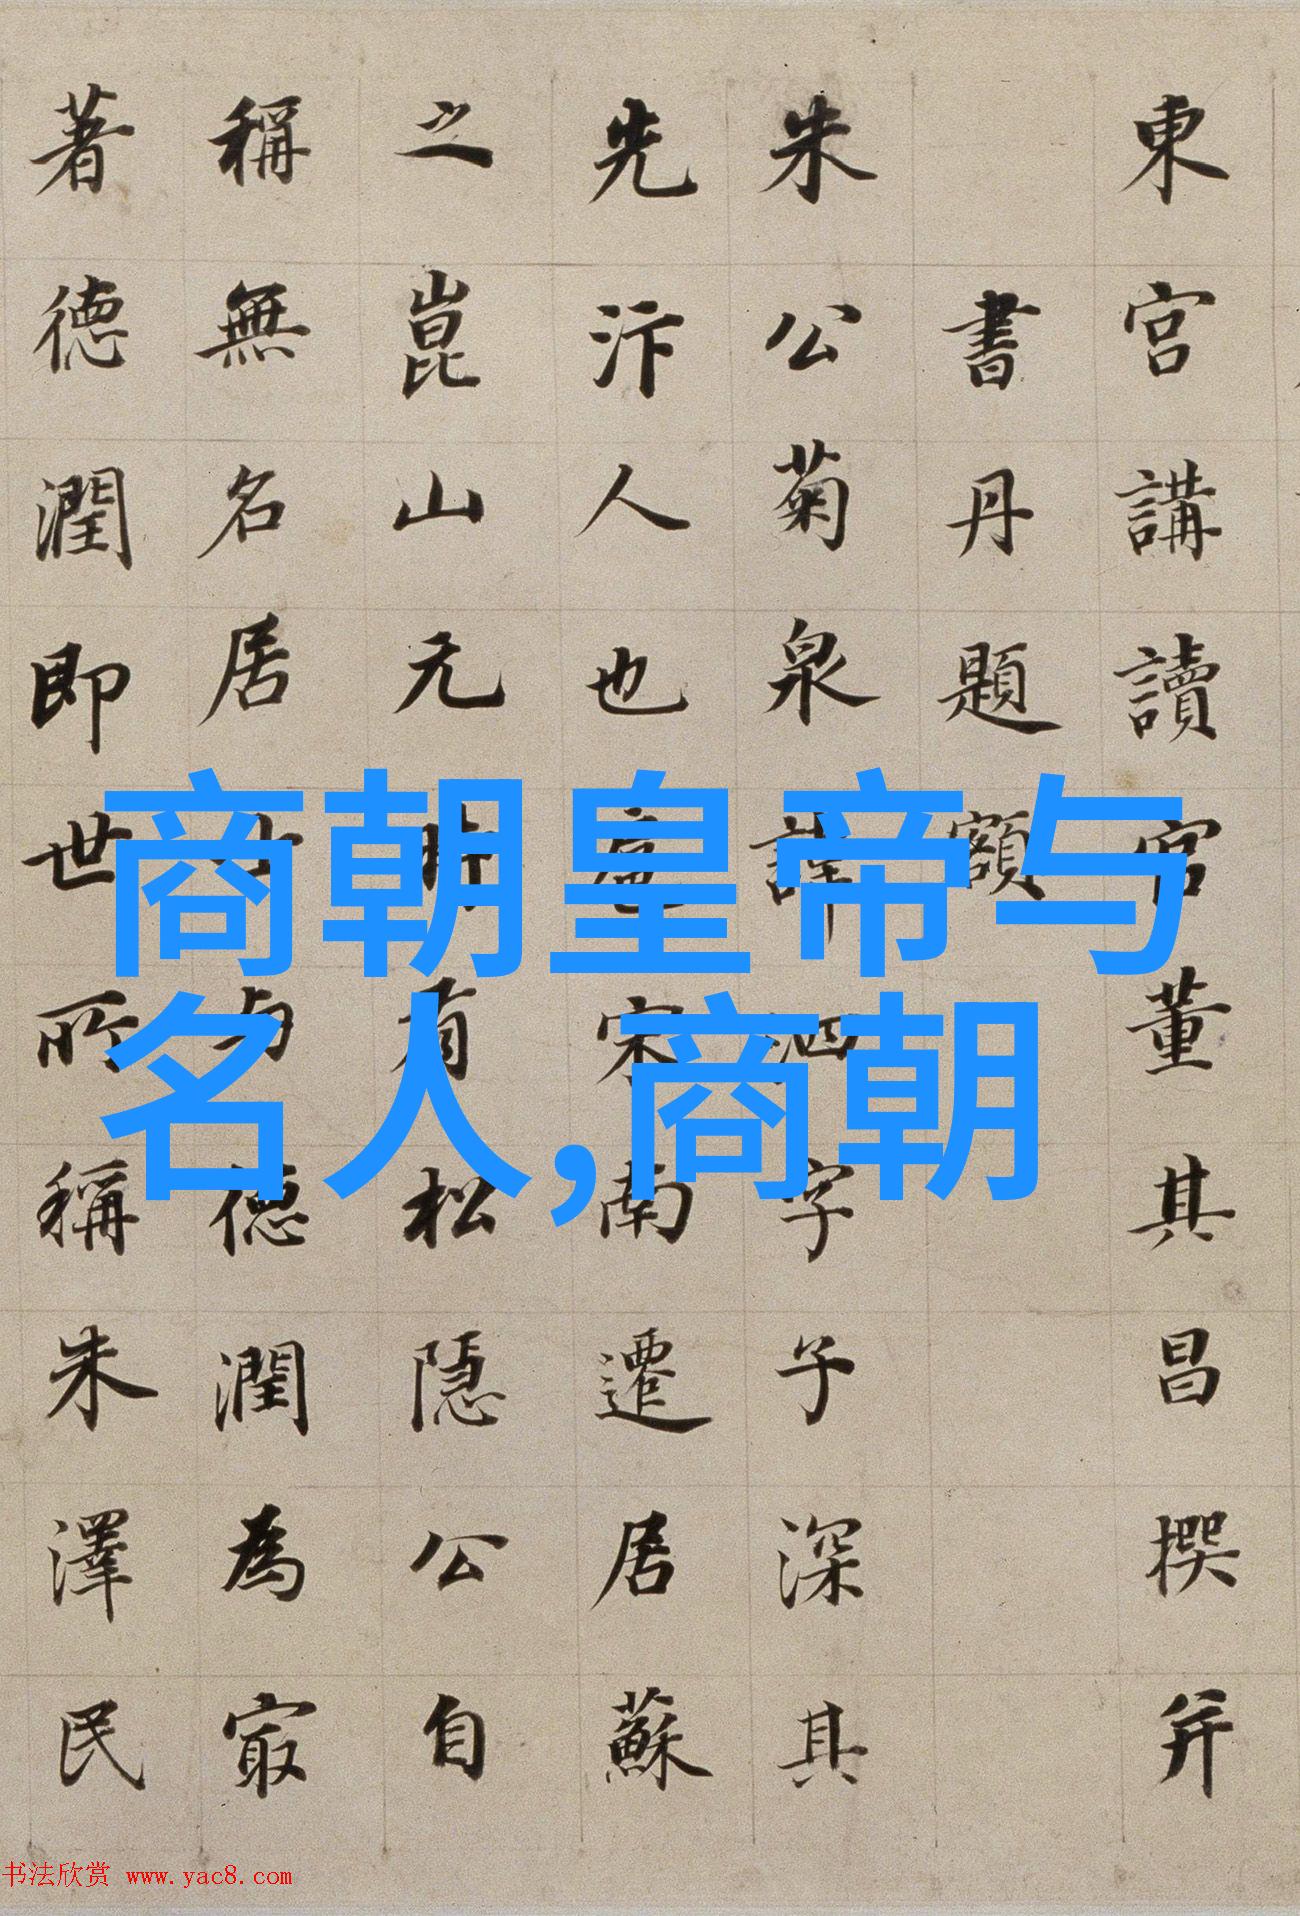 東宮講讀官董其昌撰并
書丹題額
朱公菊泉諱泗字子深其
先汴人也扈宋南遷居蘇
之崑山元時有松隱公自
稱無名居士与德潤為㝡
著德潤即世所稱朱澤民
商朝皇帝与
名人,商朝
书法欣赏 www.yac8.com